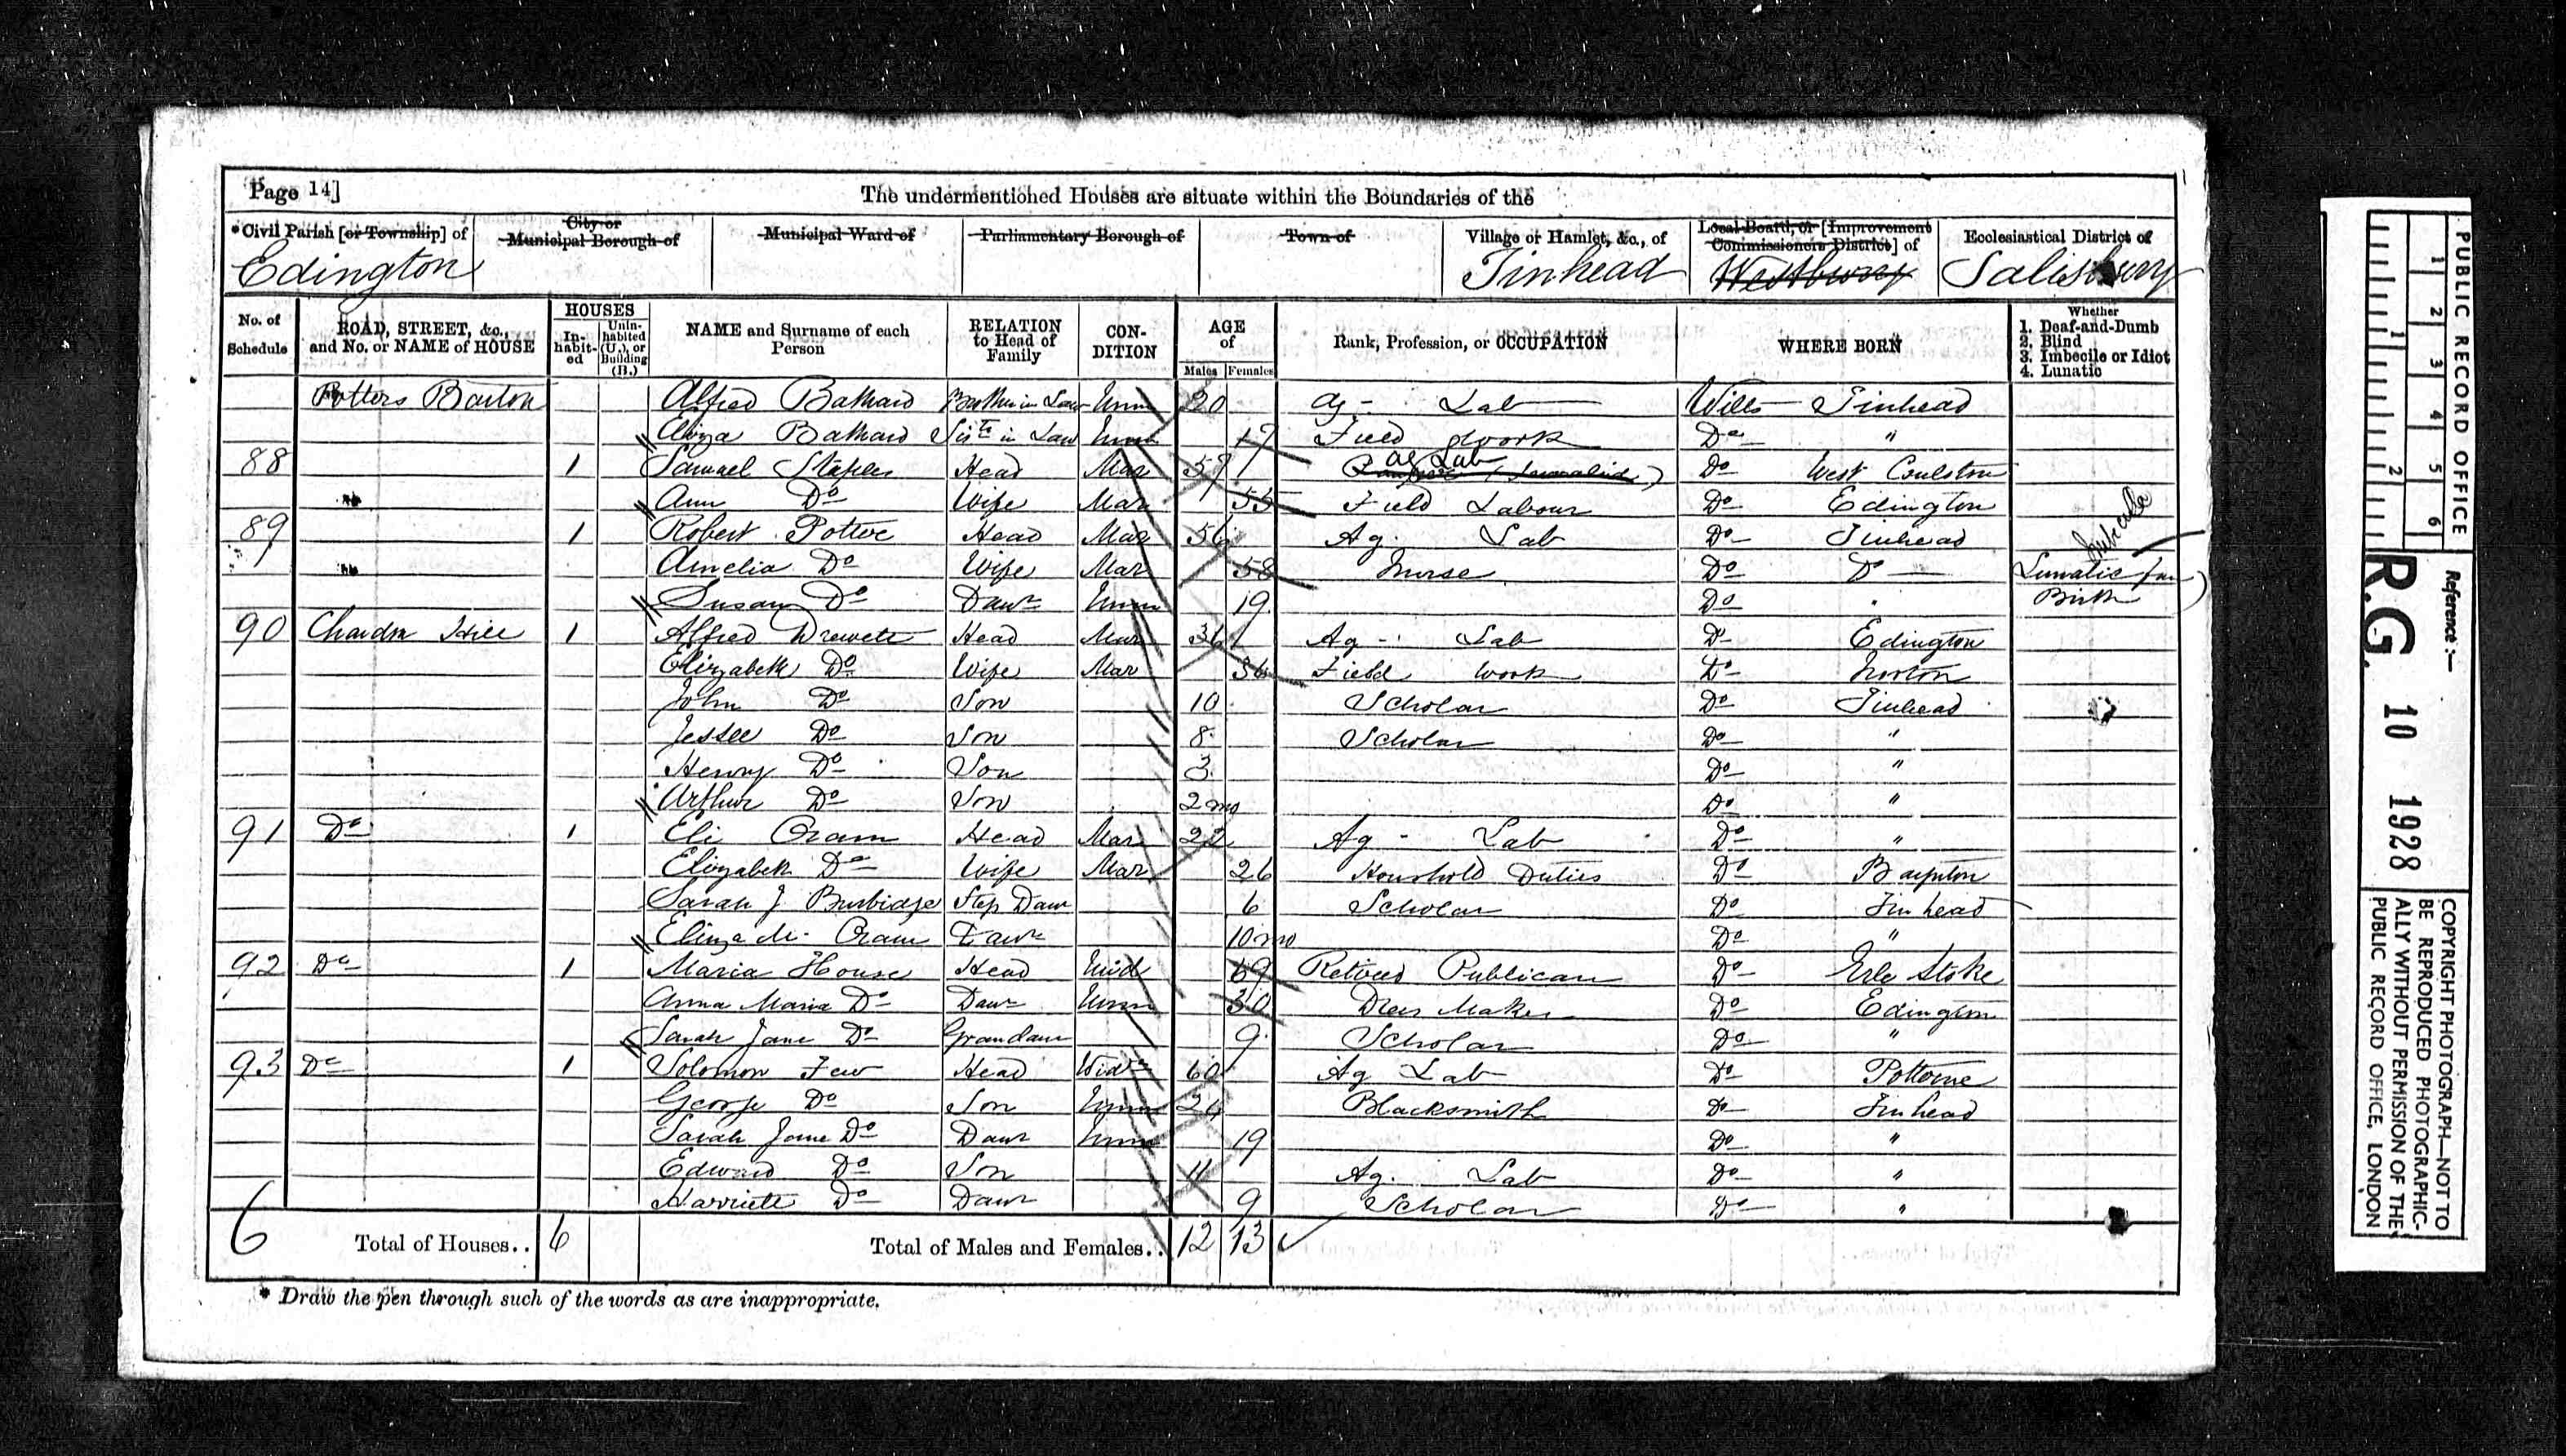 Page 14]
The undermentioned Houses are situate within the Boundaries of the
*Civil Parish [or Township] of
City or Municipal Borough of
Municipal Ward of
Parliamentary Borough of
Town of
Village or Hamlet, &c., of
Local Board, or [Improvement Commissioners District] of
Ecclesiastical District of
Edington Tinhead Westbury Salisbury
No. of Schedule
ROAD, STREET, &c., and No. or NAME of HOUSE
HOUSES
In-habit-ed
Unin-habited (U.), or Building (B.)
NAME and Surname of each Person
RELATION to Head of Family
CON-DITION
AGE of
Males Females
Rank, Profession, or OCCUPATION
WHERE BORN
Whether
1. Deaf-and-Dumb
2. Blind
3. Imbecile or Idiot
4. Lunatic
Potters Barton Alfred Brother in Law Unm 20 Ag - Lab Wilts Tinhead
Eliza Sistr in Law Unm 17 Field Work Do "
88 1 Samuel Staples Head Mar 57 Ag Lab Do West Coulston
Ann Do Wife Mar 55 Field Labour Do Edington
89 1 Robert Potter Head Mar 56 Ag. Lab Do Tinhead
Amelia Do Wife Mar 58 Nurse Do Do
Imbecile
Susan Do Daur Unm 19 Do " Lunatic from Birth
90 Hill 1 Alfred Drewett Head Mar 36 Ag - Lab Do Edington
Elizabeth Do Wife Mar 36 Field Work Do Norton
John Do Son 10 Scholar Do Tinhead
Jessee Do Son 8 Scholar Do "
Henry Do Son 3 Do "
Arthur Do Son 2 mo Do "
91 Do 1 Eli Oram Head Mar 22 Ag - Lab Do "
Elizabeth Do Wife Mar 26 Household Duties Do Baynton
Sarah J Burbidge Step Daur 6 Scholar Do Tinhead
Eliza M. Oram Daur 10 mo Do "
92 Do 1 Maria House Head Wid 69 Retired Publican Do Erle Stoke
Anna Maria Do Daur Unm 30 Dress Maker Do Edington
Sarah Jane Do Grandaur 9 Scholar Do "
93 Do 1 Solomon Few Head Widr 60 Ag Lab Do Potterne
George Do Son Unm 24 Blacksmith Do Tinhead
Sarah Jane Do Daur Unm 19 Do "
Edward Do Son 11 Ag. Lab Do "
Harriett Do Daur 9 Scholar Do "
6 Total of Houses.. 6 Total of Males and Females.. 12 13
* Draw the pen through such of the words as are inappropriate.
PUBLIC RECORD OFFICE
1 2 3 4 5 6
1 2
Reference :—
R.G. 10 1928
COPYRIGHT PHOTOGRAPH—NOT TO BE REPRODUCED PHOTOGRAPHIC-ALLY WITHOUT PERMISSION OF THE PUBLIC RECORD OFFICE, LONDON